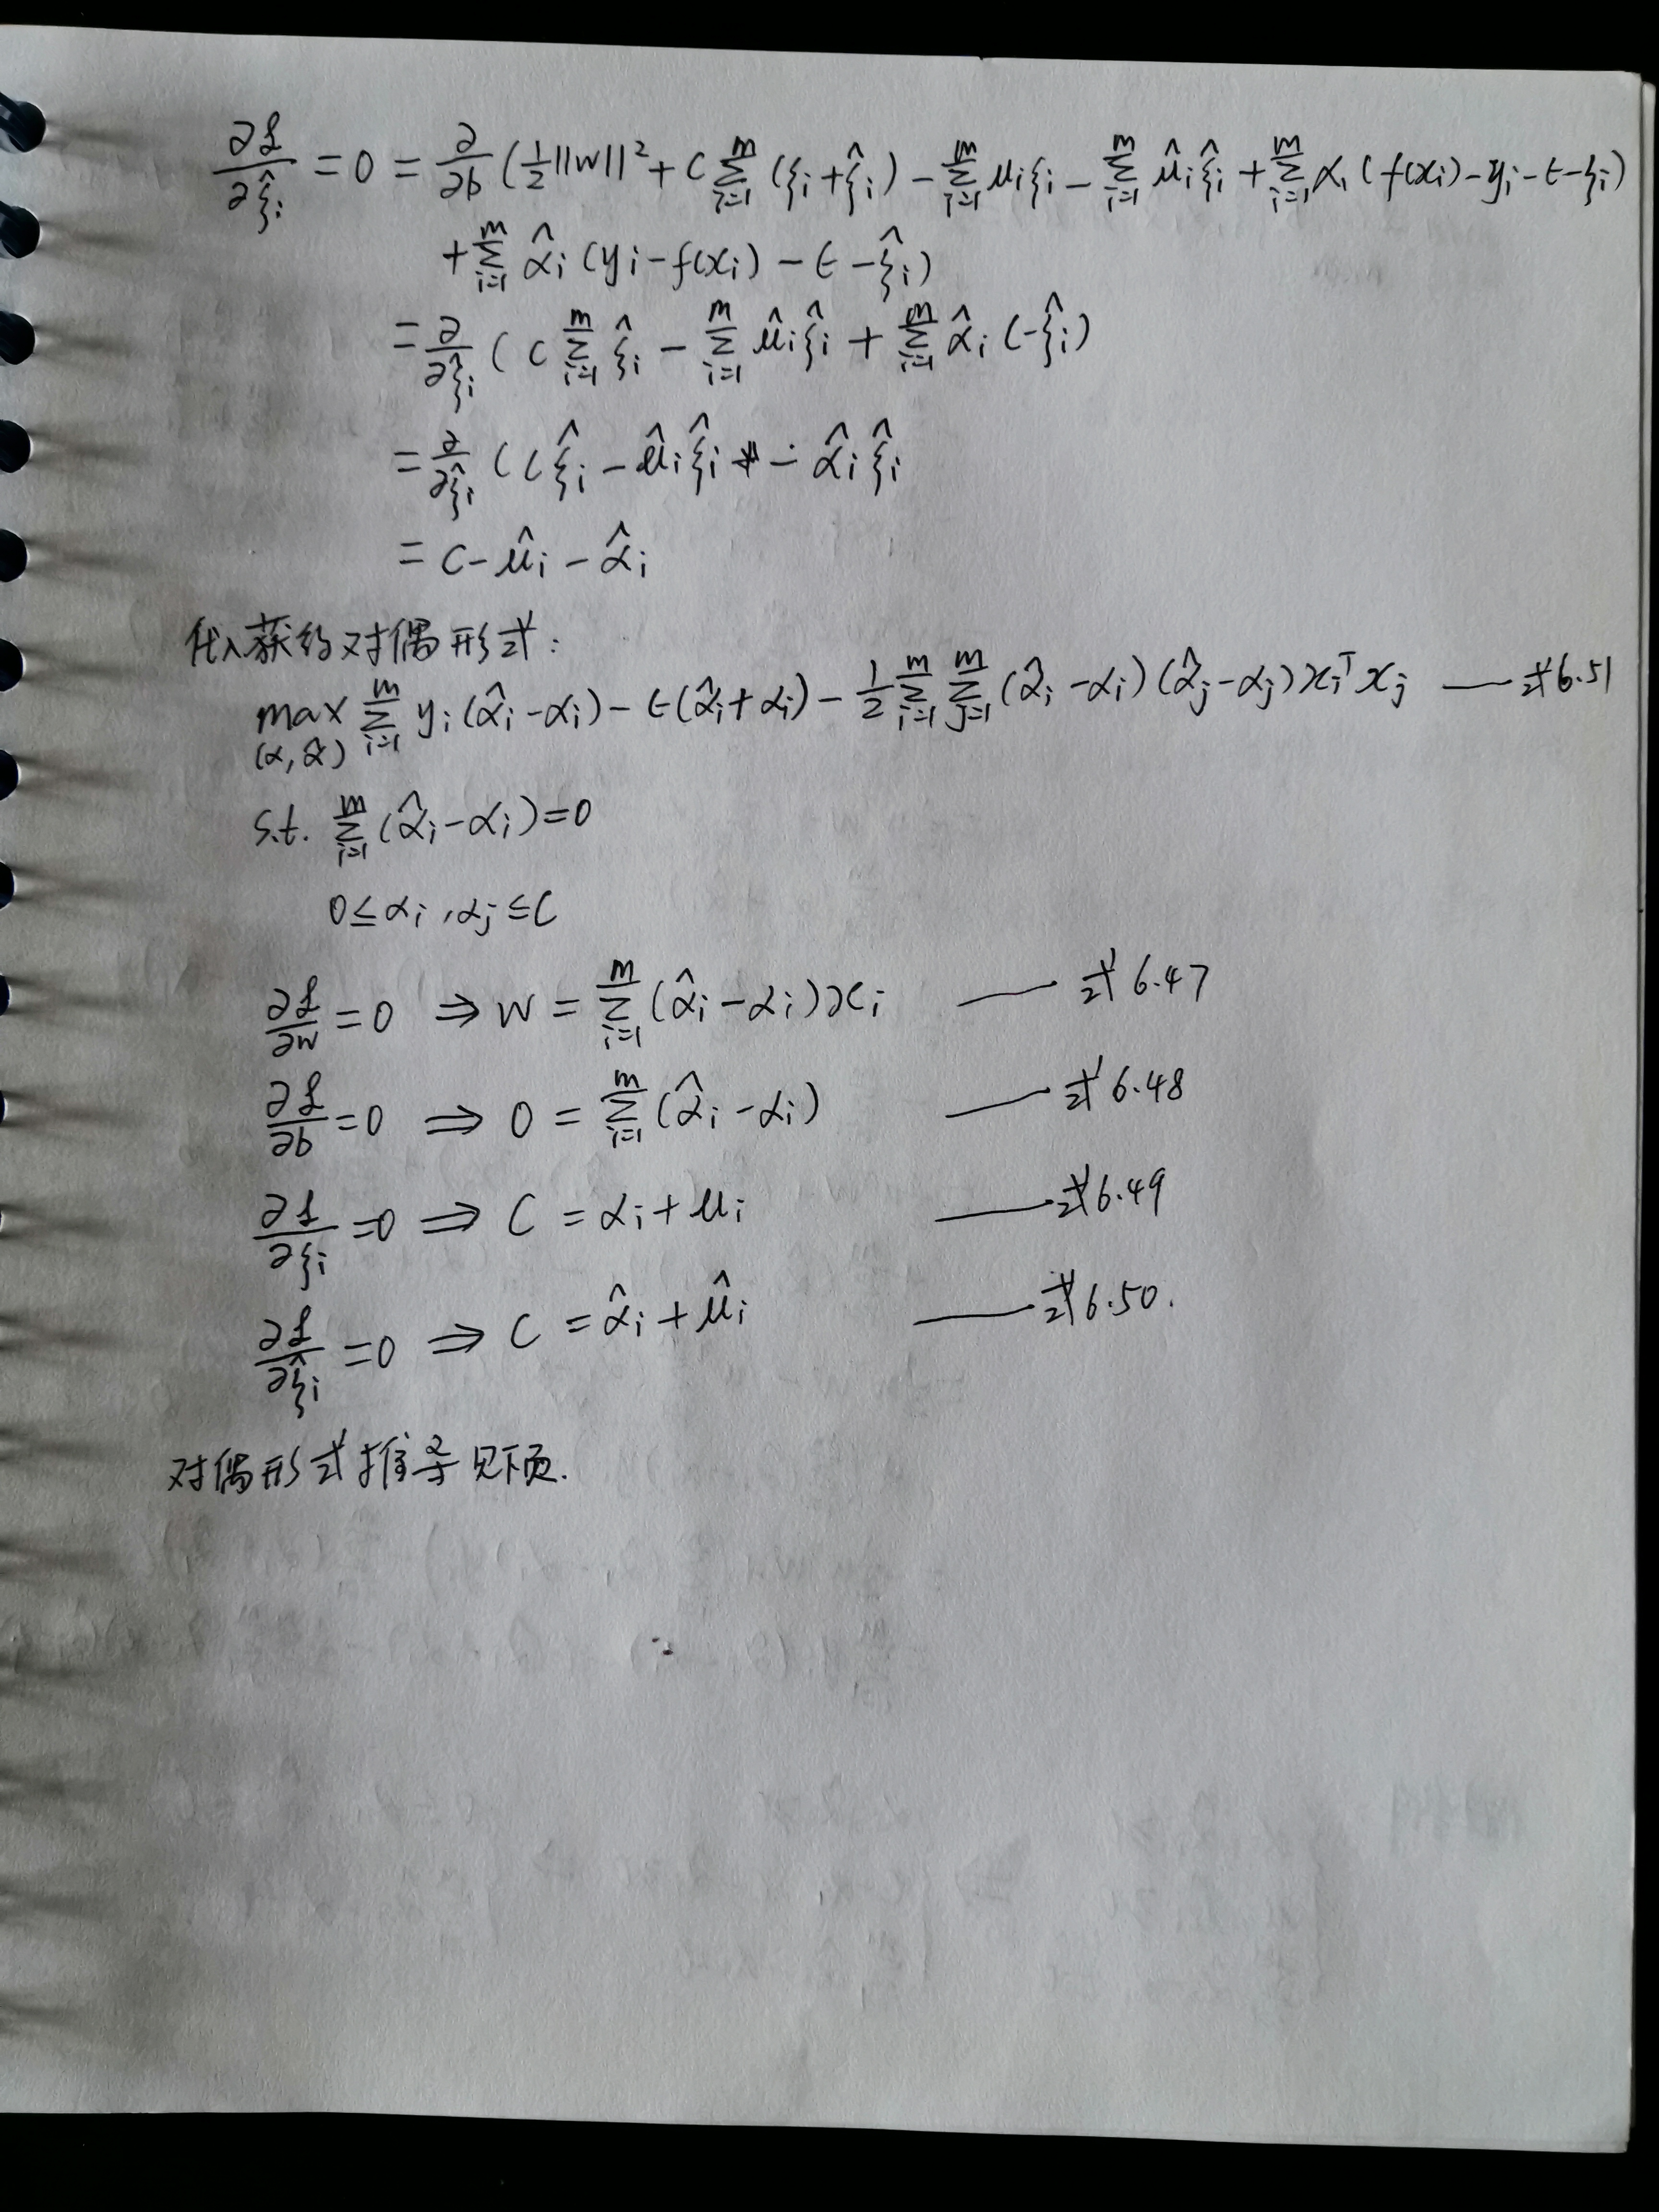 ∂L/∂ξ̂ᵢ = 0 = ∂/∂b (½||w||² + C∑ᵢ₌₁ᵐ (ξᵢ+ξ̂ᵢ) − ∑ᵢ₌₁ᵐ μᵢξᵢ − ∑ᵢ₌₁ᵐ μ̂ᵢξ̂ᵢ + ∑ᵢ₌₁ᵐ αᵢ (f(xᵢ)−yᵢ−ϵ−ξᵢ)
+ ∑ᵢ₌₁ᵐ α̂ᵢ (yᵢ−f(xᵢ) − ϵ −ξ̂ᵢ)
= ∂/∂ξ̂ᵢ ( C ∑ᵢ₌₁ᵐ ξ̂ᵢ − ∑ᵢ₌₁ᵐ μ̂ᵢξ̂ᵢ + ∑ᵢ₌₁ᵐ α̂ᵢ (−ξ̂ᵢ)
= ∂/∂ξ̂ᵢ (Cξ̂ᵢ − μ̂ᵢξ̂ᵢ − α̂ᵢξ̂ᵢ
= C − μ̂ᵢ − α̂ᵢ
代入获的对偶形式:
max ∑ᵢ₌₁ᵐ yᵢ(α̂ᵢ−αᵢ) − ϵ(α̂ᵢ+αᵢ) − ½∑ᵢ₌₁ᵐ∑ⱼ₌₁ᵐ(α̂ᵢ−αᵢ)(α̂ⱼ−αⱼ)xᵢᵀxⱼ —— 式6.51
(α,α̂)
s.t. ∑ᵢ₌₁ᵐ(α̂ᵢ−αᵢ)=0
0≤αᵢ,αⱼ≤C
∂L/∂w = 0 ⇒ w = ∑ᵢ₌₁ᵐ(α̂ᵢ−αᵢ)xᵢ —— 式6.47
∂L/∂b = 0 ⇒ 0 = ∑ᵢ₌₁ᵐ(α̂ᵢ−αᵢ) —— 式6.48
∂L/∂ξᵢ = 0 ⇒ C = αᵢ+μᵢ —— 式6.49
∂L/∂ξ̂ᵢ = 0 ⇒ C = α̂ᵢ+μ̂ᵢ —— 式6.50.
对偶形式推导见下页.